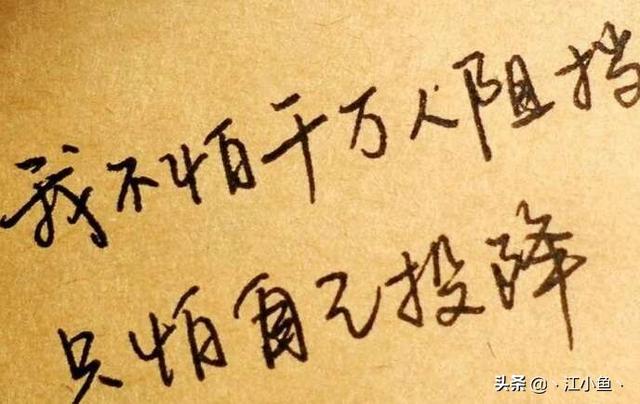 我不怕千万人阻挡
只怕自己投降
头条 @ · 江小鱼 ·